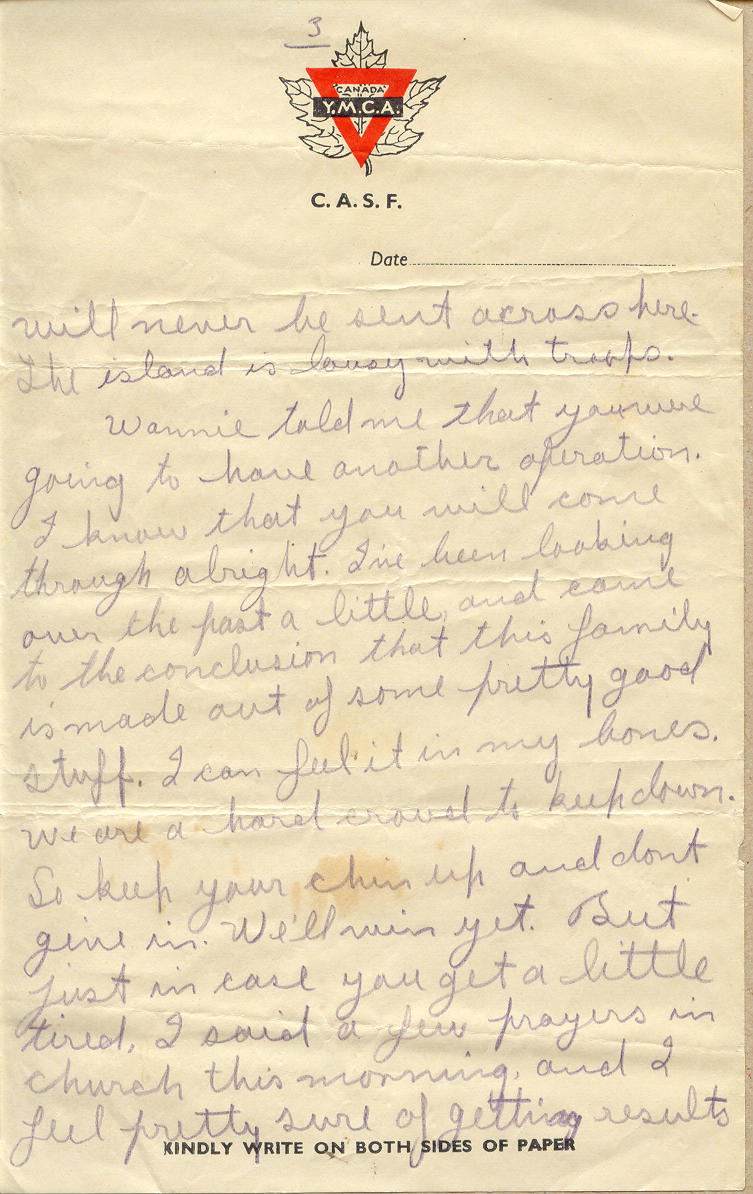 3
CANADA
Y.M.C.A.
C. A. S. F.
Date
will never be sent across here.
The island is lousy with troops.
Wannie told me that you were
going to have another operation.
I know that you will come
through alright. I've been looking
over the past a little, and came
to the conclusion that this family
is made out of some pretty good
stuff. I can feel it in my bones.
We are a hard crowd to keep down.
So keep your chin up and dont
give in. We'll win yet. But
just in case you get a little
tired, I said a few prayers in
church this morning, and I
feel pretty sure of getting results
KINDLY WRITE ON BOTH SIDES OF PAPER